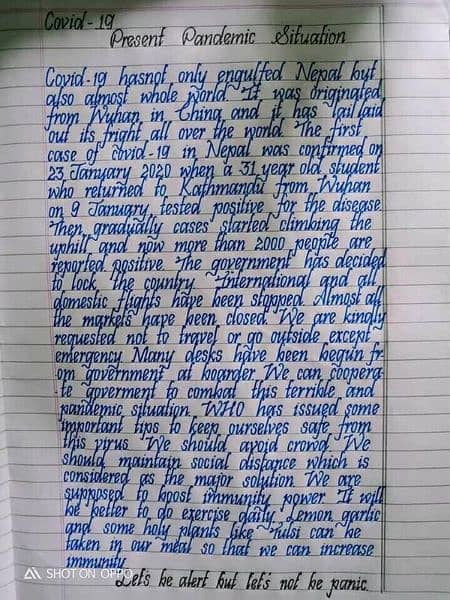 Covid-19
Present Pandemic Situation
Covid-19 hasnot only engulfed Nepal but
also almost whole world. It was originated
from Wuhan in China and it has laid
out its fright all over the world. The first
case of covid-19 in Nepal was confirmed on
23 January 2020 when a 31 year old student
who returned to Kathmandu from Wuhan
on 9 January, tested positive for the disease.
Then gradually cases started climbing the
uphill and now more than 2000 people are
reported positive. The government has decided
to lock the country. International and all
domestic flights have been stopped. Almost all
the markets have been closed. We are kindly
requested not to travel or go outside except
emergency. Many desks have been begun fr-
om government at boarder. We can coopera-
te goverment to combat this terrible and
pandemic situation. WHO has issued some
important tips to keep ourselves safe from
this virus. We should avoid crowd. We
should maintain social distance which is
considered as the major solution. We are
supposed to boost immunity power. It will
be better to do exercise daily. Lemon, garlic
and some holy plants like Tulsi can be
taken in our meal so that we can increase
immunity.
Let's be alert but let's not be panic.
SHOT ON OPPO